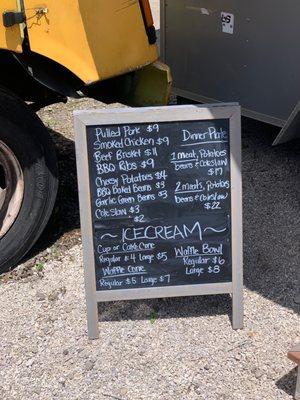 Pulled Pork $9
Smoked Chicken $9
Beef Brisket $11
BBQ Ribs $9
Cheesy Potatoes $4
BBQ Baked Beans $3
Garlic Green Beans $3
Cole Slaw $3
$2
Dinner Plate
1 meat, Potatoes
Beans & Coleslaw
$17
2 meats, Potatoes
Beans & Coleslaw
$22
~ICECREAM~
Cup or Cake Cone
Regular $4 Large $5
Waffle Cone
Regular $5 Large $7
Waffle Bowl
Regular $6
Large $8